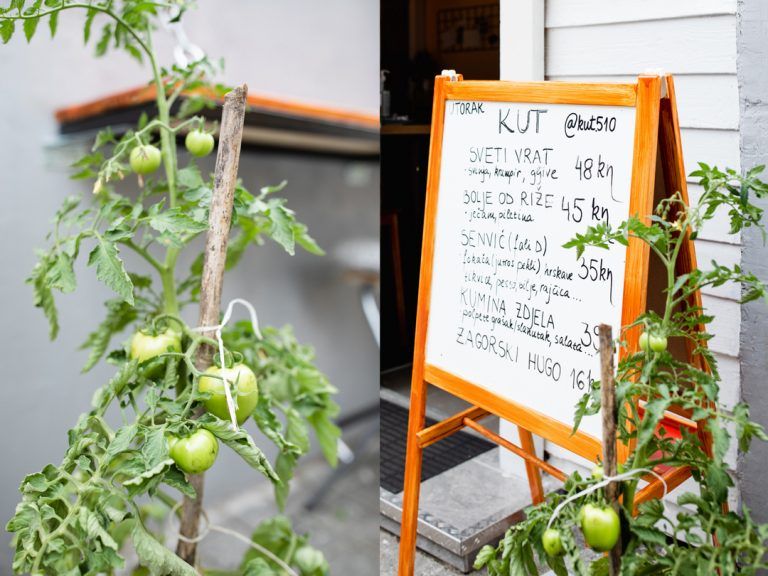 UTORAK
KUT @kut510
SVETI VRAT 48 kn
svinja, krumpir, gljive
BOLJE OD RIŽE 45 kn
ječam, piletina
SENVIČ (fali D)
fokača (jutros pekli) hrskave 35 kn
tikvice, pesto, bilje, rajčica...
KUMINA ZDJELA
polpete grašak/slanutak, salata... 39
ZAGORSKI HUGO 16 k